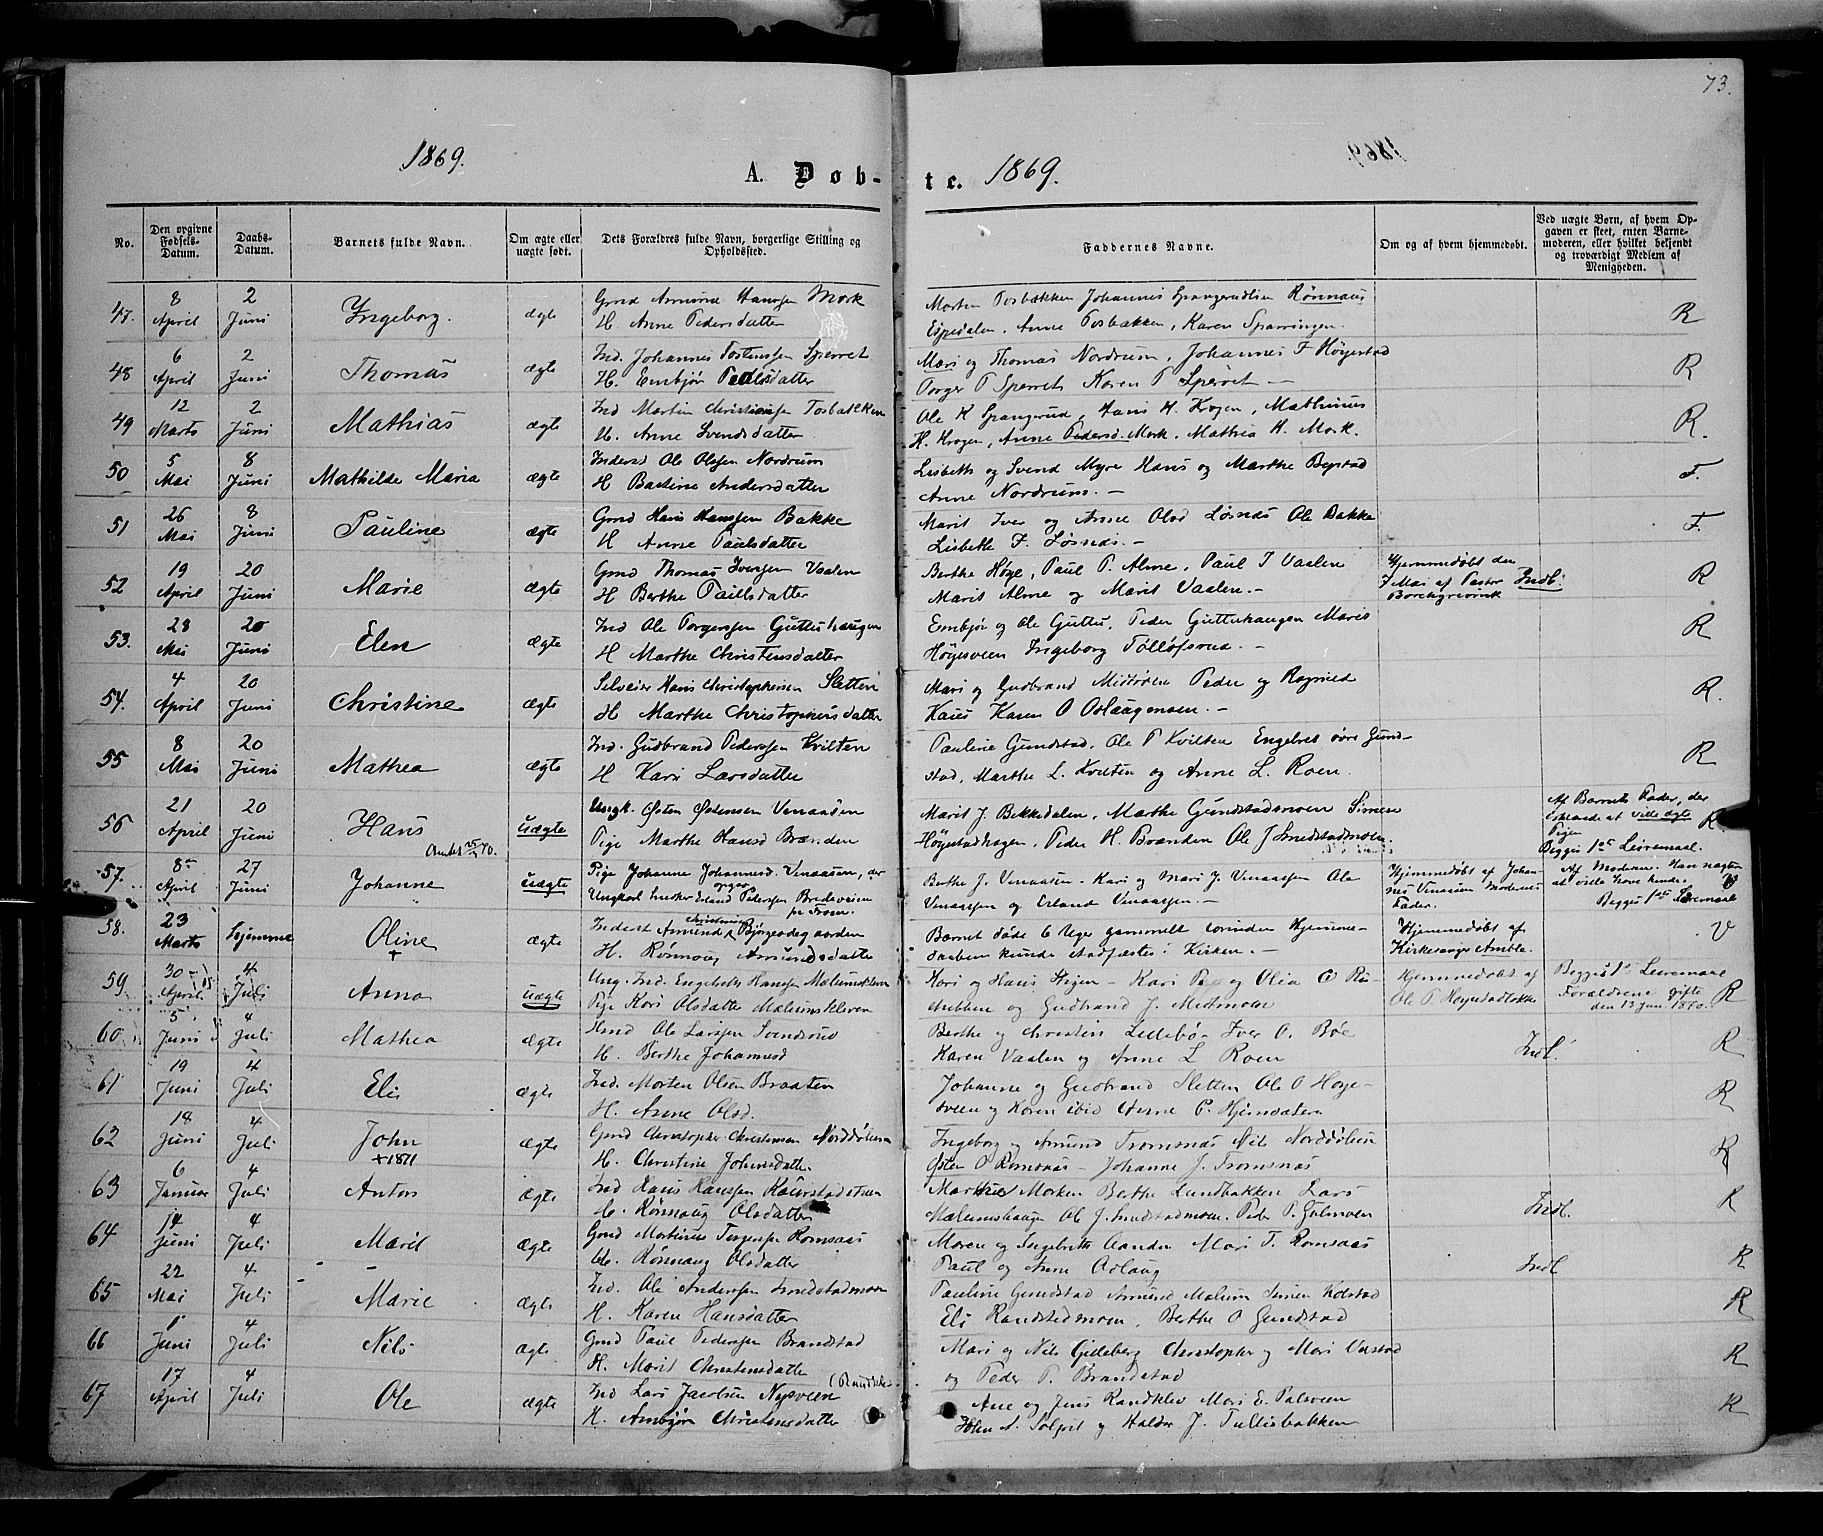 73.
1869.
A. Døb-
te. 1869.
No.
Den opgivne Fødsels-Datum.
Daabs-Datum.
Barnets fulde Navn.
Om ægte eller uægte født.
Dets Forældres fulde Navn, borgerlige Stilling og Opholdssted.
Faddernes Navne.
Om og af hvem hjemmedøbt.
Ved uægte Børn, af hvem Opgaven er skeet, enten Barnemoderen, eller hvilket bekjendt og troværdigt Medlem af Menigheden.
47. 8 April 2 Juni Ingeborg. ægte Gmd Amund Hansen Mork
H. Anne Pedersdatter
Morten Tosbækken Johannes Spangrudlien Rønnaug
Espedalen, Anne Tosbækken, Karen Sparringen. R
48 6 April 2 Juni Thomas ægte Ind. Johannes Tostensen Sperret
H. Embjør Pedersdatter
Mari og Thomas Nordrum, Johannes F Høgestad
Torger T Sperret Karen T Sperret — R
49 12 Marts 2 Juni Mathias ægte Ind Martin Christiansen Tosbækken
H. Anne Svendsdatter
Ole K Spangrud, Hans H. Krogen, Mathinus
H. Krogen, Anne Pedersd. Mork, Mathea H. Mork. R.
50 5 Mai 8 Juni Mathilde Maria ægte Inderst Ole Olsen Nordrum
H Bastine Andersdatter
Lisbeth og Svend Myre Hans og Marthe
Anne Nordrum. — F.
51 26 Mai 8 Juni Pauline ægte Gmd Hans Hansen Bakke
H Anne Paulsdatter
Marit Iver og Anne Olsd Løsnæs Ole Bakke
Lisbeth F. Løsnæs. — F.
52 19 April 20 Juni Marie ægte Gmd Thomas Iversen Vaalen
H Berthe Paulsdatter
Berthe Høye, Paul P. Alme, Paul T Vaalen
Marit Alme og Marit Vaalen. —
Hjemmedøbt den
7 Mai af Pastor Indl. R
53. 28 Mai 20 Juni Elen ægte Ind Ole Torgersen Guttuhaugen
H Marthe Christensdatter
Embjør og Ole Guttu, Peder Guttuhaugen Marit
Høyesveen Ingeborg Tollofsrud. — R
54. 4 April 20 Juni Christine ægte Selveier Hans Christophersen Sletten
H Marthe Christophersdatter
Mari og Gudbrand Midtmoen Peder og Ragnild
Haus Karen O — R.
55 8 Mai 20 Juni Mathea ægte Ind. Gudbrand Pedersen Kvilten
H Kari Larsdatter
Pauline Gundstad, Ole P Kvilten Engebret øvre Gund-
stad, Marthe L. Kvilten og Anne L. Roen. R
56 21 April 20 Juni Hans uægte Ungk. Østen Østensen Venaasen
Pige Marthe Hansd Brænden
Marit J. Bekkedalen, Marthe Gundstadmoen Simen
Høgestadhagen, Peder H. Brænden Ole J Smedstadmoen.
Af Barnets Fader, der
at ville ægte
Pigen
Begges 1ste Leiermaal. R
57. 8 April 27 Juni Johanne uægte Pige Johanne Johannesd. Venaasen, der
Ungkarl Erland Pedersen Bredeveien
Berthe J. Venaasen, Kari og Mari J Venaasen Ole
Venaasen og Erland Venaasen. —
Hjemmedøbt af Johan-
nes Venaasen Moderens
Fader.
Af Moderen. Han nægter
at ville have kundet
Begges 1ste Leiermaal
58. 23 Marts Hjemme Oline + ægte Inderst Amund Christiansen Bjørgeødegaarden
H. Rønnoug Amundsdatter
Barnet døde 6 Uger gammelt forinden Hjemme-
daaben kunde stadfæstes i Kirken. —
Hjemmedøbt af
Kirkesanger Amble. V
59 30 April 4 Juli Anna uægte Ung. Ind. Engebreth Hansen Mælumskleven
Pige Kari Olsdatter Mælumskleven
Kari og Hans Stigen — Kari og Olea O
og Gudbrand J. Midtmoen
Hjemmedøbt af
Ole P. Høgestadløkken
Begges 1ste Leiermaal
Forældrene gifte
den 13 Juni 1870. R
60 5 Juni 4 Juli Mathea ægte Hmd Ole Larsen Svendsrud
H. Berthe Johannesd
Berthe og Christen Lillebør Iver O. Bøe
Karen Vaalen og Anne L Roen Indl. R
61 19 Juni 4 Juli Eli ægte Ind. Morten Olsen Braaten
H. Anne Olsd.
Johanne og Gudbrand Sletten Ole O Høye-
sveen og Karen ibid Anne P. R
62 18 Juni 4 Juli John +1871 ægte Gmd Christopher Christensen Norddølum
H. Christine Johnsdatter
Ingeborg og Amund Tromsnæs Nils Norddølum
Østen O Romsaas — Johanne J. Tromsnæs R
63 6 Januar 4 Juli Anton ægte Ind Hans Hansen
H. Rønnaug Olsdatter
Morken Berthe Lundbakken Lars
Mælumshaugen Ole J. Smedstadmoen. Peder P. Indl. R
64 14 Juni 4 Juli Marit ægte Gmd Mortinus Torgersen Romsaas
H. Rønnaug Olsdatter
Maren og Ingebreth Aanden Mari T. Romsaas
Paul og Anne Odlaug Indl R
65 22 Mai 4 Juli Marie ægte Ind. Ole Andersen Smedstadmoen
H. Karen Hansdatter
Pauline Gundstad Amund Mælum Simen Kolstad
Eli Randstedmoen, Berthe O Gundstad R
66 1 Juni 4 Juli Nils ægte Gmd Paul Pedersen Brandstad
H. Marit Christensdatter
Mari og Nils Gilleberg Christopher og Mari
og Peder P. Brandstad R
67 17 April 4 Juli Ole ægte Ind Lars Jacobsen Nysveen
H. Ambjør Christensdatter
Ane og Jens Randklev Mari E. Palsveen
og Haldor J. Tullisbakken R